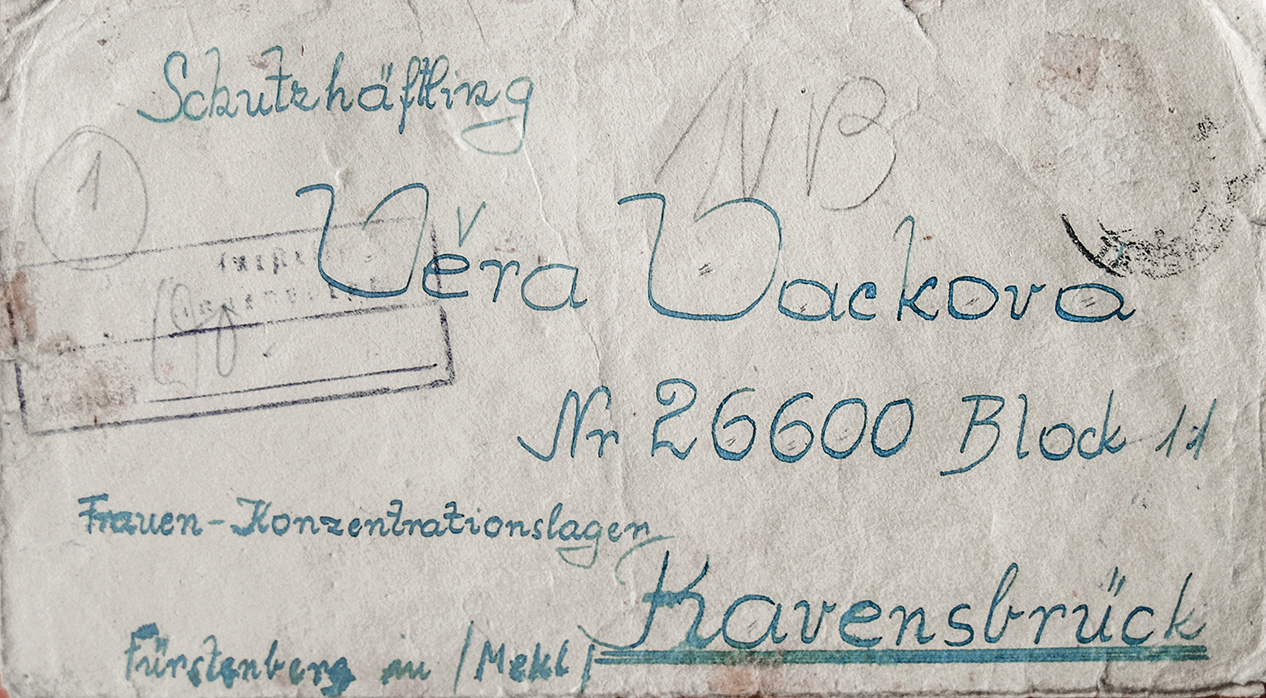 Schutzhäftling
NB
1
Věra Vackova
Nr 26600 Block 11
Frauen-Konzentrationslager
Ravensbrück
Fürstenberg in /Mekl/